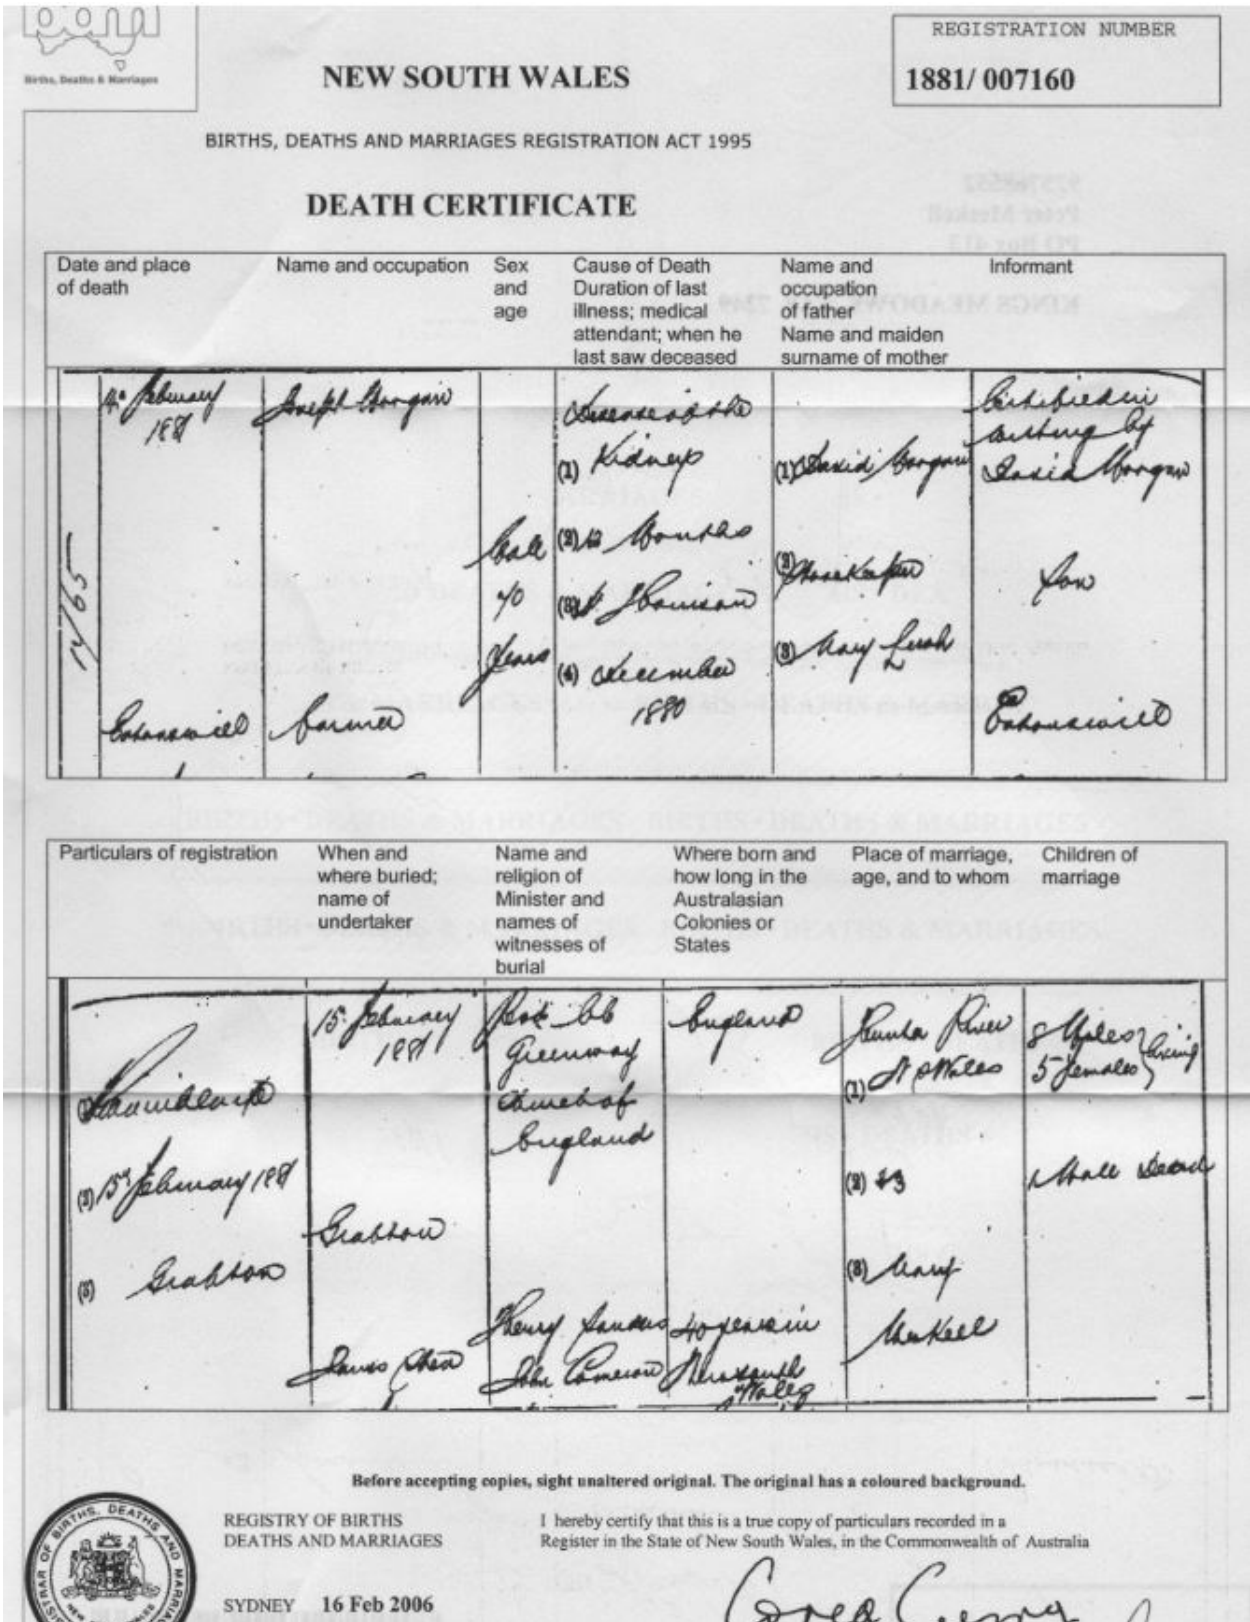 bdm
Births, Deaths & Marriages
NEW SOUTH WALES
REGISTRATION NUMBER
1881/ 007160
BIRTHS, DEATHS AND MARRIAGES REGISTRATION ACT 1995
DEATH CERTIFICATE
Date and place
of death
Name and occupation
Sex
and
age
Cause of Death
Duration of last
illness; medical
attendant; when he
last saw deceased
Name and
occupation
of father
Name and maiden
surname of mother
Informant
February
1881
Joseph Morgan
Male
70
Years
Disease of the
(1) Kidneys
(2) 12 Months
(3)
(4) December
1880
(1) David Morgan
(2)
(3) Mary Lush
Certified in
writing by
David Morgan
Son
Farmer
Particulars of registration
When and
where buried;
name of
undertaker
Name and
religion of
Minister and
names of
witnesses of
burial
Where born and
how long in the
Australasian
Colonies or
States
Place of marriage,
age, and to whom
Children of
marriage
(2) 15 February 1881
(3) Grafton
15 February
1881
Grafton
James
Greenway
Church of
England
Henry
John Cameron
England
40 years in
New South
Wales
River
(1) N S Wales
(2) 23
(3) Mary
8 Males
5 Females
living
1 Male Dead
Before accepting copies, sight unaltered original. The original has a coloured background.
REGISTRY OF BIRTHS
DEATHS AND MARRIAGES
SYDNEY 16 Feb 2006
I hereby certify that this is a true copy of particulars recorded in a
Register in the State of New South Wales, in the Commonwealth of Australia